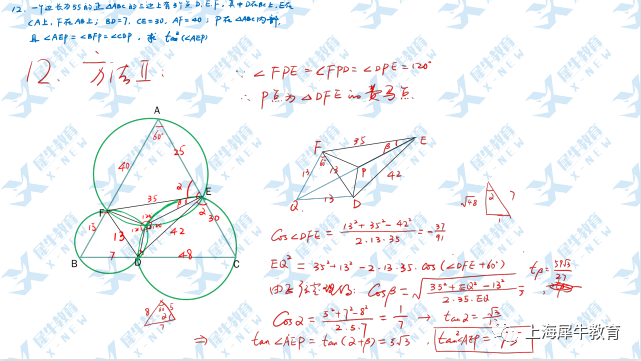 12. 一个边长为55的正△ABC的三边上有3个点D、E、F, 其中D在BC上, E在
CA上, F在AB上; BD=7, CE=30, AF=40; P在△ABC内部,
且∠AEP=∠BFP=∠CDP, 求 tan²(∠AEP)
12. 方法Ⅱ:
∵ ∠FPE=∠FPD=∠DPE=120°
∴ P点为△DFE的费马点.
A
60°
40
25
2
E
35
β
2
30
F
15
13
42
B
7
D
48
C
F
35
E
60
β
13
13
P
42
Q
13
D
√48
2
7
Cos∠DFE = (13²+35²-42²)/(2·13·35) = -37/91
EQ² = 35²+13²-2·13·35·cos(∠DFE+60°)
cosβ = √(35²+EQ²-13²)/(2·35·EQ)
Cos2 = (5²+7²-8²)/(2·5·7) = 1/7 → tan2 =
8
5
2
7
⇒ tan∠AEP = tan(2+β) = 5√3
tan²AEP = 75
上海犀牛教育
犀牛教育
X-NEW